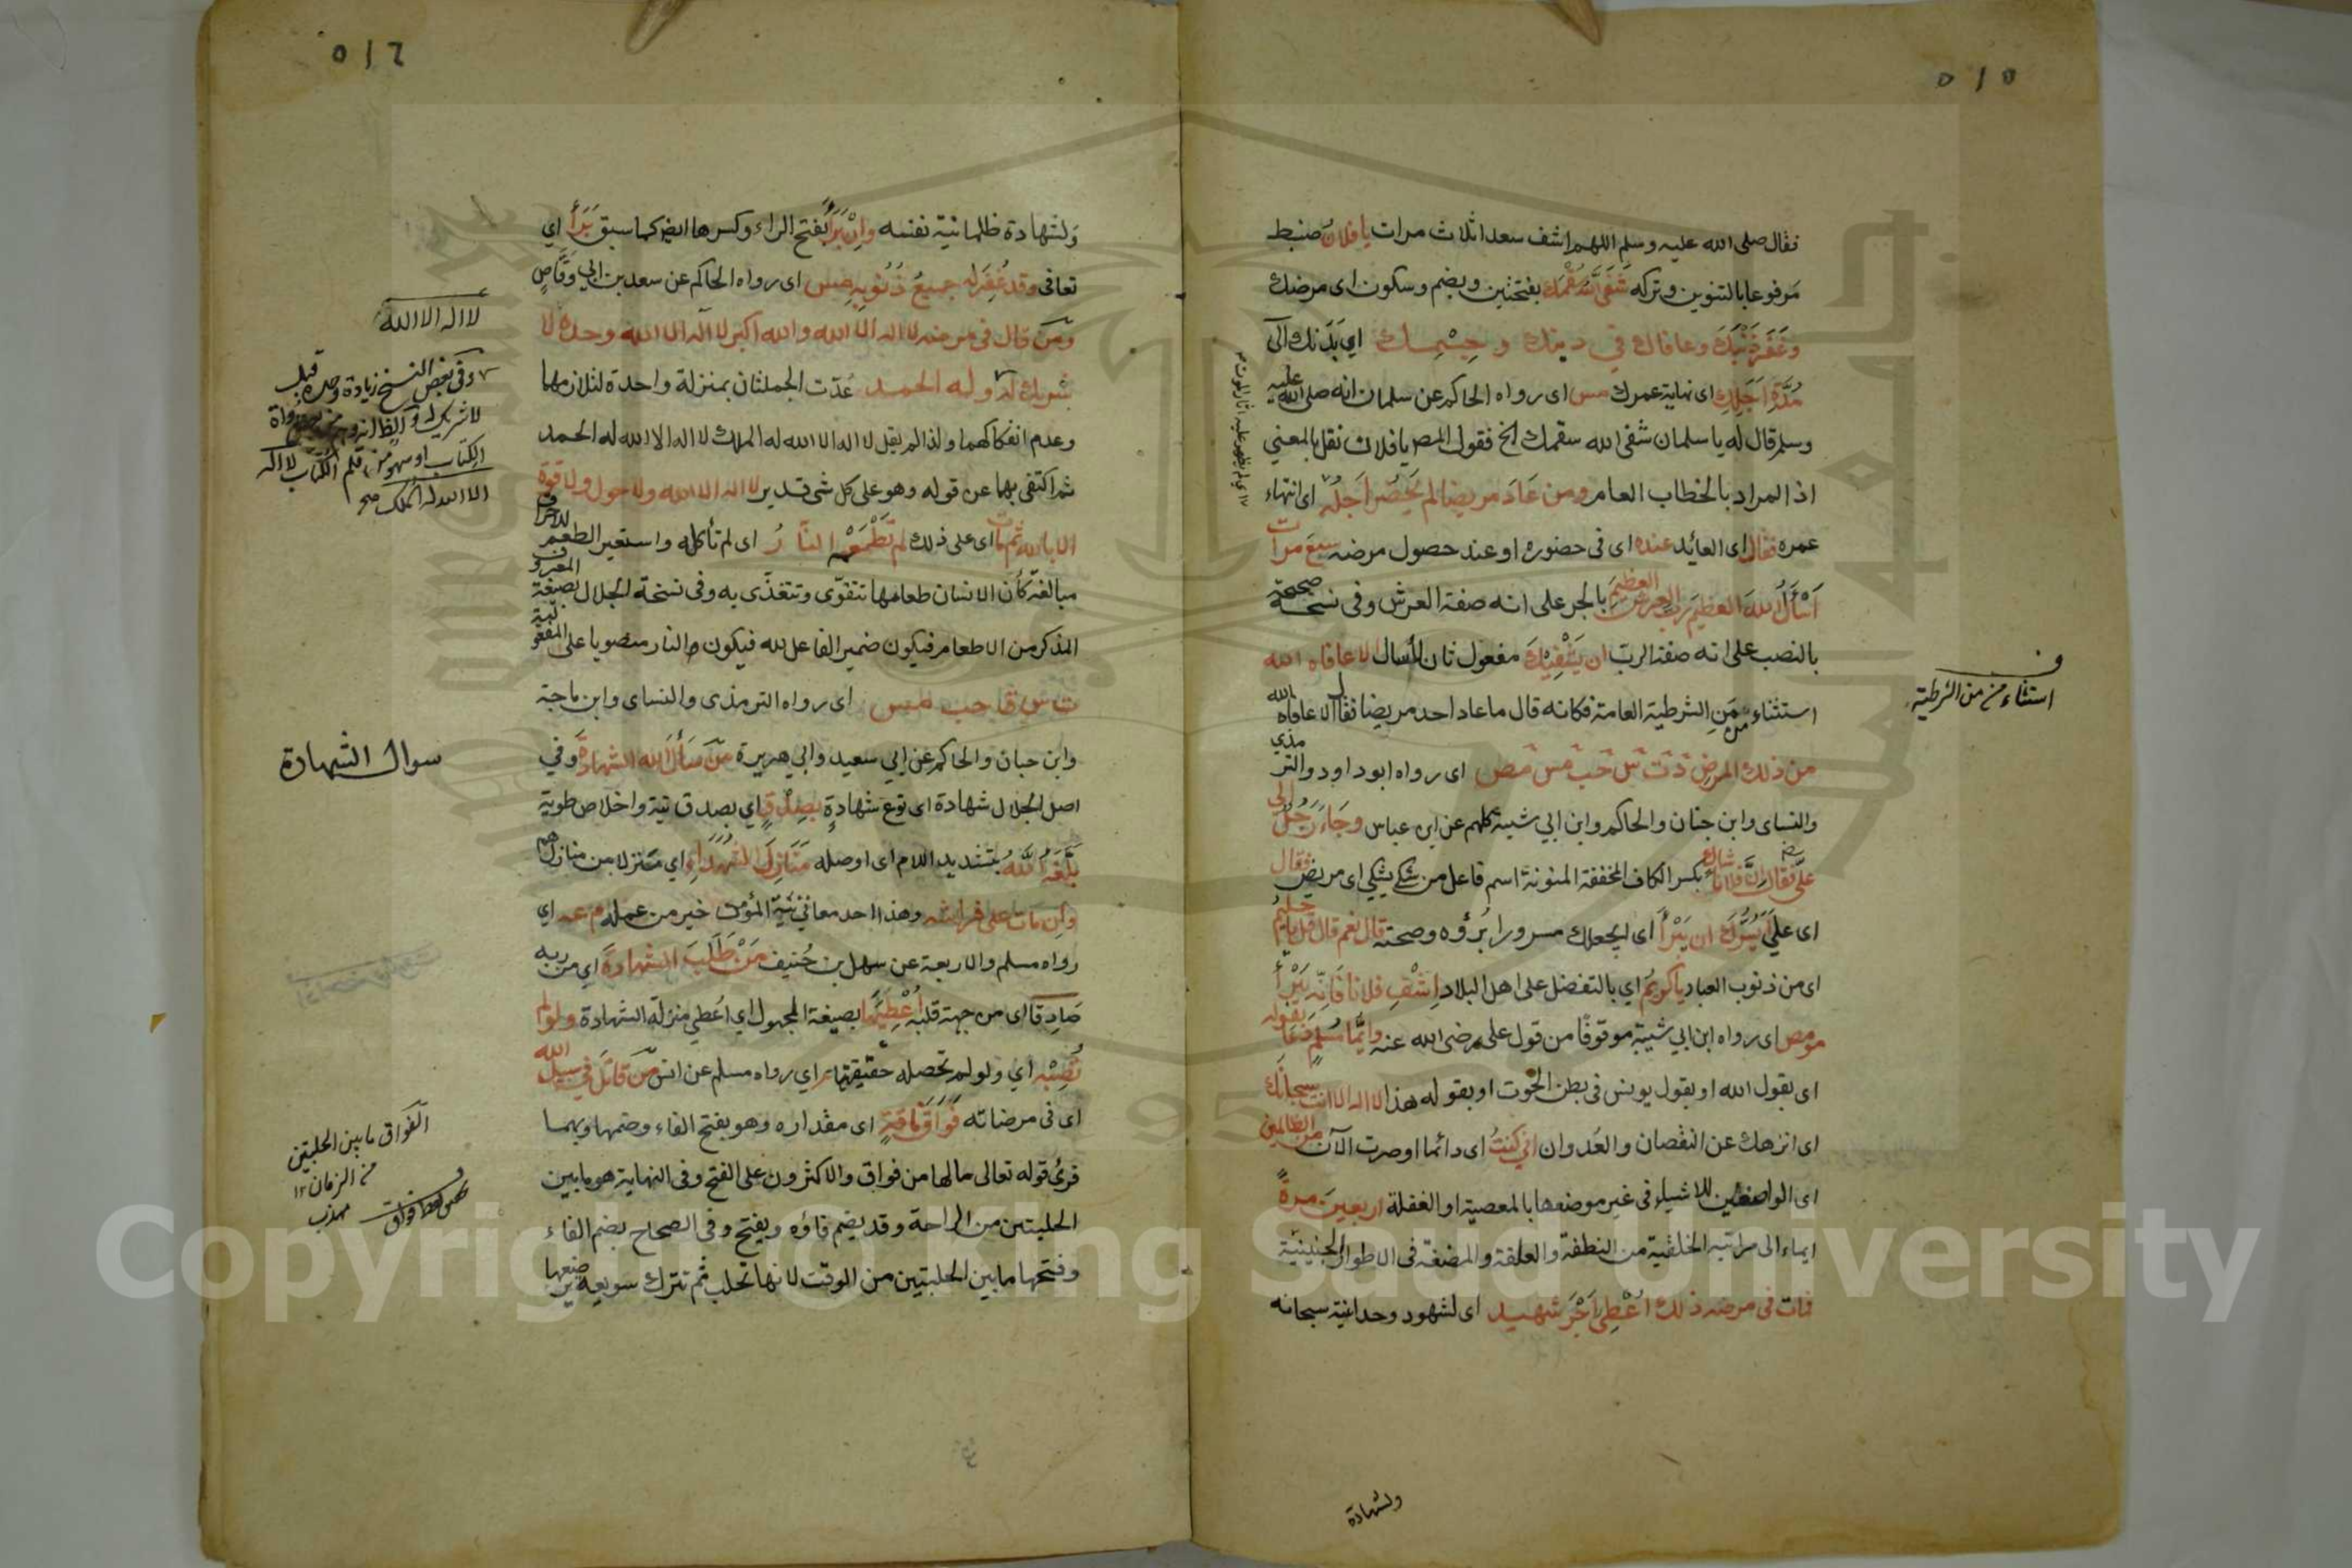 ٥١٥
فقال صلى الله عليه وسلم اللهم اشف سعدا ثلاث مرات يا فلان ضبط
مرفوعا بالتنوين وتركه شَفَى اللهُ سُقْمَكَ بفتحتين وبضم وسكون اى مرضك
وَغَفَرَ ذَنْبَكَ وعافاك في دينك وجِسْمِك اي بَدَنك الى
مُدَّةِ اَجَلِكَ اى نهاية عمرك مس اى رواه الحاكم عن سلمان انه صلى الله عليه
وسلم قال له يا سلمان شفى الله سقمك الخ فقول المص يا فلان نقل بالمعني
اذ المراد بالخطاب العام ومن عَادَ مريضا لم يَحْضُر اَجَلُه اى انتهاء
عمره فقال اى العائد عنده اى فى حضوره او عند حصول مرضه سبعَ مرات
اَسْأَلُ اللهَ العظيمَ ربَّ العرشِ العظيمِ بالجر على انه صفة العرش وفى نسخة صحيحة
بالنصب على انه صفة الربّ ان يَشْفِيَكَ مفعول ثان لأسال الا عافاه الله
استثناء من مَنِ الشرطية العامة فكانه قال ما عاد احد مريضا فقال الا عافاه الله
من ذلك المرض دَ تَ سَ حَبَ مَسَ مَص اى رواه ابو داود والترمذي
والنساى وابن حبان والحاكم وابن ابي شيبة كلهم عن ابن عباس وجَاءَ رَجُلٌ الى
عليّ فقال اِنّ فلانا شاكٍ بكسر الكاف المخففة المنونة اسم فاعل من شكى يشكي اى مريض فقال
اى عليّ اَيَسُرُّكَ ان يَبْرأَ اى ايجعلك مسرورا بُرؤه وصحته قال نعم قال قل يا حليمُ
اى من ذنوب العباد يا كريمُ اي بالتفضل على اهل البلاد اِشْفِ فلانا فَاِنّه يَبْرأُ
مو مص اى رواه ابن ابي شيبة موقوفًا من قول على رضى الله عنه وايُّما مُسْلِمٍ دَعَا بقوله
اى بقول الله او بقول يونس فى بطن الحوت او بقوله هذا لا اله الا انت سبحانَك
اى انزهك عن النقصان والعُدوان اني كنتُ اى دائما او صرت الآن من الظالمين
اى الواضعين للاشياء فى غير موضعها بالمعصية او الغفلة اربعينَ مرةً
ايماء الى مراتبه الخلقية من النطفة والعلقة والمضغة فى الاطوار الجنينية
فمات فى مرضه ذلك اُعْطِيَ اَجْرَ شهيد اى لشهود وحدانية سبحانه
ولشهادة
استثناء من من الشرطية
٥١٦
ولشهادة ظلمانية نفسه وإنْ بَرَأَ بفتح الراء وكسرها ايضا كما سبق بَرَأَ اي
تعافى وقد غُفِرَ له جميعُ ذُنُوبِه مس اى رواه الحاكم عن سعد بن ابي وَقَّاصٍ
ومَن قال فى مرضه لا اله الا الله والله اكبر لا اله الا الله وحده لا
شريك له وله الحمد عُدّت الجملتان بمنزلة واحدة لتلازمهما
وعدم انفكاكهما ولذا لم يقل لا اله الا الله له الملك لا اله الا الله له الحمد
ثم اكتفى بهما عن قوله وهو على كل شى قدير لا اله الا الله ولا حول ولا قوة
الا بالله ثم مات اى على ذلك لم تَطْعَمْه النّارُ اى لم تأكله واستعير الطعم للاحراق
مبالغة كأن الانسان طعامها تتقوّى وتتغذّى به وفى نسخة الجلال بصيغة المعروف
المذكر من الاطعام فيكون ضمير الفاعل لله فيكون والنار منصوبا على المفعولية
ت س ق حب مس اى رواه الترمذى والنساى وابن ماجة
وابن حبان والحاكم عن ابي سعيد وابي هريرة مَنْ سَأَلَ الله الشهادةَ وفي
اصل الجلال شهادة اى نوع شهادةٍ بصِدْقٍ اي بصدق نية واخلاص طوية
بَلَّغَهُ اللهُ بتشديد اللام اى اوصله مَنَازِلَ الشهَدَاءِ اي منزلا من منازلهم
وإن مات على فراشه وهذا احد معاني نيّة المؤمن خير من عمله م عه اي
رواه مسلم والاربعة عن سهل بن حُنيف مَنْ طَلَبَ الشهادةَ اي من ربه
صَادِقًا اى من جهة قلبه اُعْطِيَهَا بصيغة المجهول اي اُعطي منزلة الشهادة ولو لم
تُصِبْه اي ولو لم تحصله حقيقتها م اي رواه مسلم عن انس مَنْ قاتَلَ في سبيل الله
اى فى مرضاته فَوَاقَ ناقةٍ اى مقداره وهو بفتح الفاء وضمها وبهما
قرئ قوله تعالى مالها من فواق والاكثرون على الفتح وفى النهاية هو ما بين
الحلبتين من الراحة وقد يضم فاؤه ويفتح وفى الصحاح بضم الفاء
وفتحها ما بين الحلبتين من الوقت لانها تحلب ثم تترك سويعة
لا اله الا الله
وفى بعض النسخ زيادة وحده قبل
لا شريك
الكتاب او سهو من قلم الكتاب لا اله
الا الله له الملك صح
سوال الشهادة
الفواق ما بين الحلبتين
من الزمان ١٢
مهذب